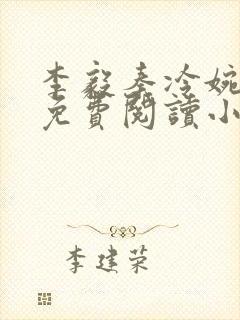 李毅秦冷婉
免費閱讀小
李建荣